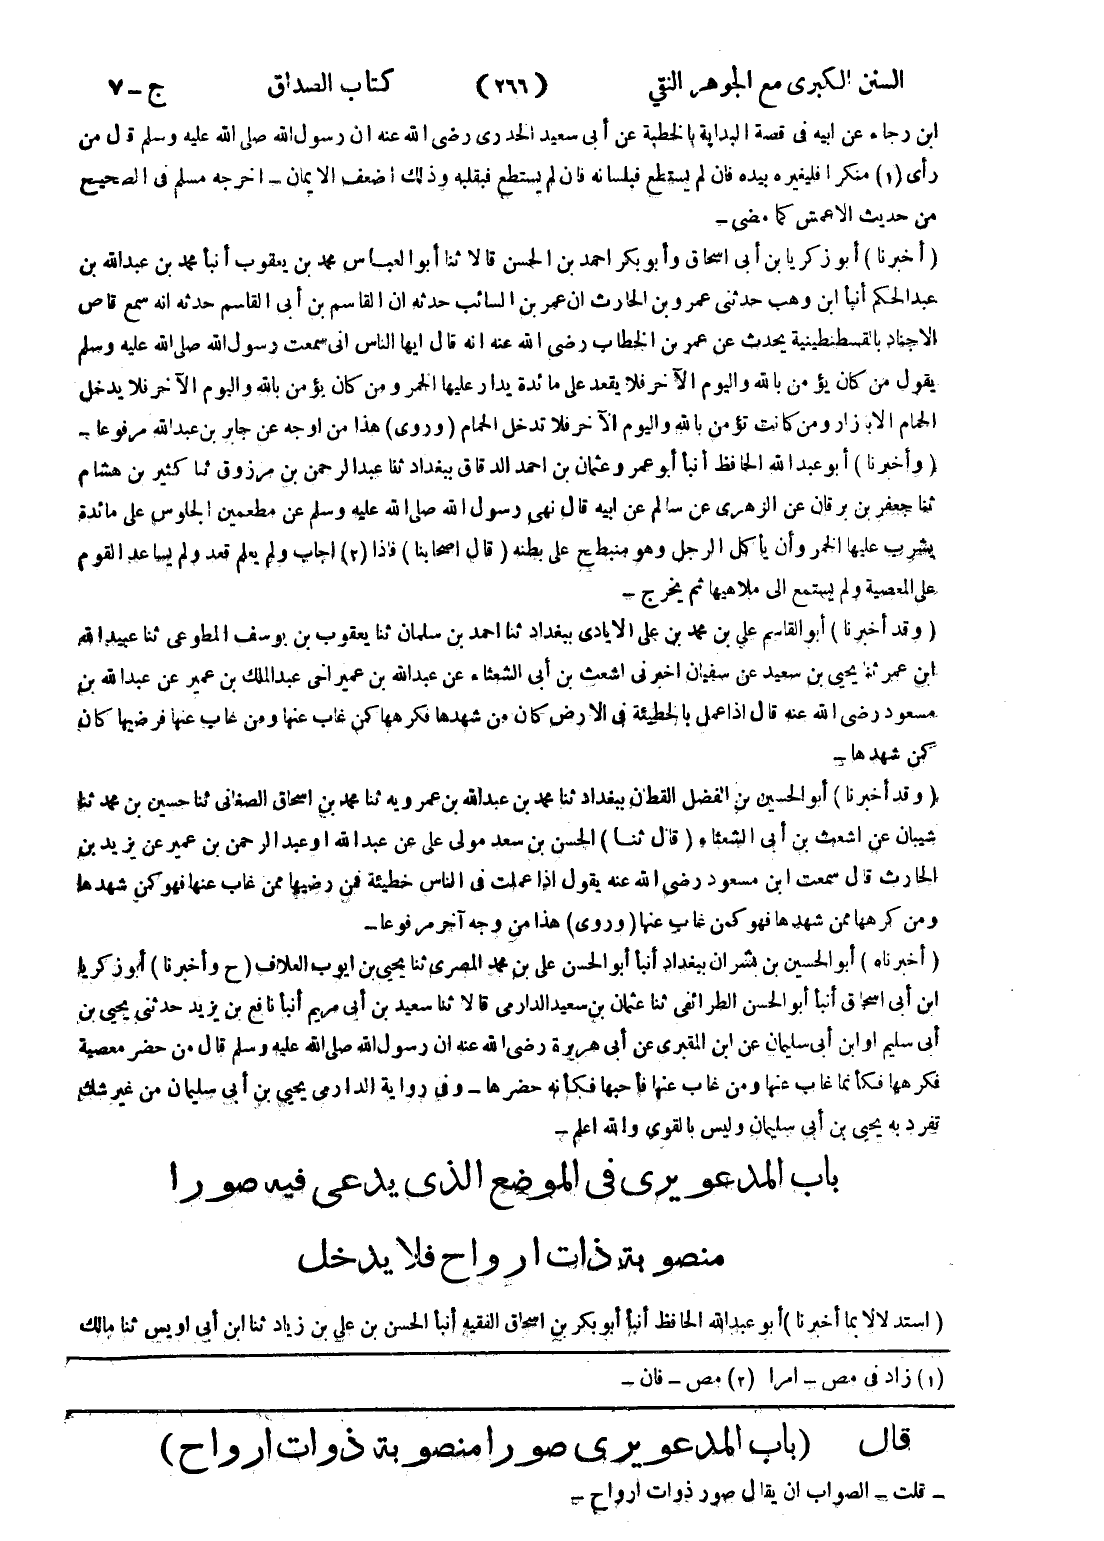 السنن الكبرى مع الجوهر النقي (٢٦٦) كتاب الصداق ج - ٧
ابن رجاء عن ابيه فى قصة البداية بالخطبة عن أبى سعيد الخدرى رضى الله عنه ان رسول الله صلى الله عليه وسلم قال من
رأى (١) منكرا فليغيره بيده فان لم يستطع فبلسانه فان لم يستطع فبقلبه وذلك اضعف الايمان - اخرجه مسلم فى الصحيح
من حديث الاعمش كما مضى -
( أخبرنا ) أبو زكريا بن أبى اسحاق وأبو بكر احمد بن الحسن قالا ثنا أبو العباس محمد بن يعقوب أنبأ محمد بن عبد الله بن
عبد الحكم أنبأ ابن وهب حدثنى عمرو بن الحارث ان عمر بن السائب حدثه ان القاسم بن أبى القاسم حدثه انه سمع قاص
الاجناد بالقسطنطينية يحدث عن عمر بن الخطاب رضى الله عنه انه قال ايها الناس انى سمعت رسول الله صلى الله عليه وسلم
يقول من كان يؤمن بالله واليوم الآخر فلا يقعد على مائدة يدار عليها الخمر ومن كان يؤمن بالله واليوم الآخر فلا يدخل
الحمام الا بازار ومن كانت تؤمن بالله واليوم الآخر فلا تدخل الحمام ( وروى ) هذا من اوجه عن جابر بن عبد الله مرفوعا -
( وأخبرنا ) أبو عبد الله الحافظ أنبأ أبو عمرو عثمان بن احمد الدقاق ببغداد ثنا عبد الرحمن بن مرزوق ثنا كثير بن هشام
ثنا جعفر بن برقان عن الزهرى عن سالم عن ابيه قال نهى رسول الله صلى الله عليه وسلم عن مطعمين الجلوس على مائدة
يشرب عليها الخمر وأن يأكل الرجل وهو منبطح على بطنه ( قال اصحابنا ) فاذا (٢) اجاب ولم يعلم قعد ولم يساعد القوم
على المعصية ولم يستمع الى ملاهيها ثم يخرج -
( وقد أخبرنا ) أبو القاسم علي بن محمد بن على الايادى ببغداد ثنا احمد بن سلمان ثنا يعقوب بن يوسف المطوعى ثنا عبيد الله
ابن عمر ثنا يحيى بن سعيد عن سفيان اخبرنى اشعث بن أبى الشعثاء عن عبد الله بن عمير اخى عبد الملك بن عمير عن عبد الله بن
مسعود رضى الله عنه قال اذا عمل بالخطيئة فى الارض كان من شهدها فكرهها كمن غاب عنها ومن غاب عنها فرضيها كان
كمن شهدها -
( وقد أخبرنا ) أبو الحسين بن الفضل القطان ببغداد ثنا محمد بن عبد الله بن عمرويه ثنا محمد بن اسحاق الصغانى ثنا حسين بن محمد ثنا
شيبان عن اشعث بن أبى الشعثاء ( قال ثنا ) الحسن بن سعد مولى على عن عبد الله او عبد الرحمن بن عمير عن يزيد بن
الحارث قال سمعت ابن مسعود رضى الله عنه يقول اذا عملت فى الناس خطيئة فمن رضيها ممن غاب عنها فهو كمن شهدها
ومن كرهها ممن شهدها فهو كمن غاب عنها ( وروى ) هذا من وجه آخر مرفوعا -
( أخبرناه ) أبو الحسين بن بشران ببغداد أنبأ أبو الحسن على بن محمد المصرى ثنا يحيى بن ايوب العلاف ( ح وأخبرنا ) أبو زكريا
ابن أبى اسحاق أنبأ أبو الحسن الطرائفى ثنا عثمان بن سعيد الدارمى قالا ثنا سعيد بن أبى مريم أنبأ نافع بن يزيد حدثنى يحيى بن
أبى سليم او ابن أبى سليمان عن ابن المقبرى عن أبى هريرة رضى الله عنه ان رسول الله صلى الله عليه وسلم قال من حضر معصية
فكرهها فكأنما غاب عنها ومن غاب عنها فأحبها فكأنه حضرها - وفى رواية الدارمى يحيى بن أبى سليمان من غير شك
تفرد به يحيى بن أبى سليمان وليس بالقوى والله اعلم -
باب المدعو يرى فى الموضع الذى يدعى فيه صورا
منصوبة ذات ارواح فلا يدخل
( استدلالا بما أخبرنا ) أبو عبد الله الحافظ أنبأ أبو بكر بن اسحاق الفقيه أنبأ الحسن بن علي بن زياد ثنا ابن أبى اويس ثنا مالك
(١) زاد فى مص - امرا (٢) مص - فان -
قال (باب المدعو يرى صورا منصوبة ذوات ارواح)
- قلت - الصواب ان يقال صور ذوات ارواح -